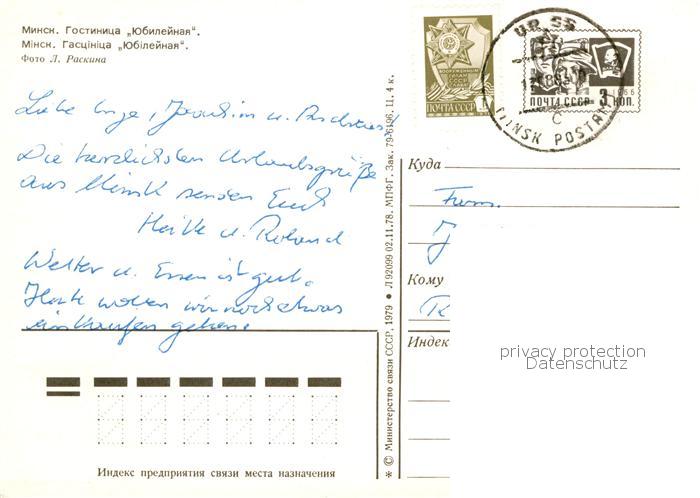 Минск. Гостиница „Юбилейная“.
Мінск. Гасцініца „Юбілейная“.
Фото Л. Раскина
Liebe Inge, Joachim u.
Die herzlichsten Urlaubsgrüße
aus Minsk senden Euch
Heike u. Roland
Wetter u. Essen ist gut.
Heute wollen wir noch etwas
einkaufen gehen.
ВООРУЖЕННЫЕ
СИЛЫ
СССР
ПОЧТА СССР 1
ПОЧТА СССР 3 КОП.
1966
UR SS
MINSK POSTAMT
C
Куда
Fam.
J
Кому
R
Индек
privacy protection
Datenschutz
* © Министерство связи СССР, 1979 ● Л 92099 02.11.78. МПФГ. Зак. 79-6196. Ц. 4 к.
Индекс предприятия связи места назначения